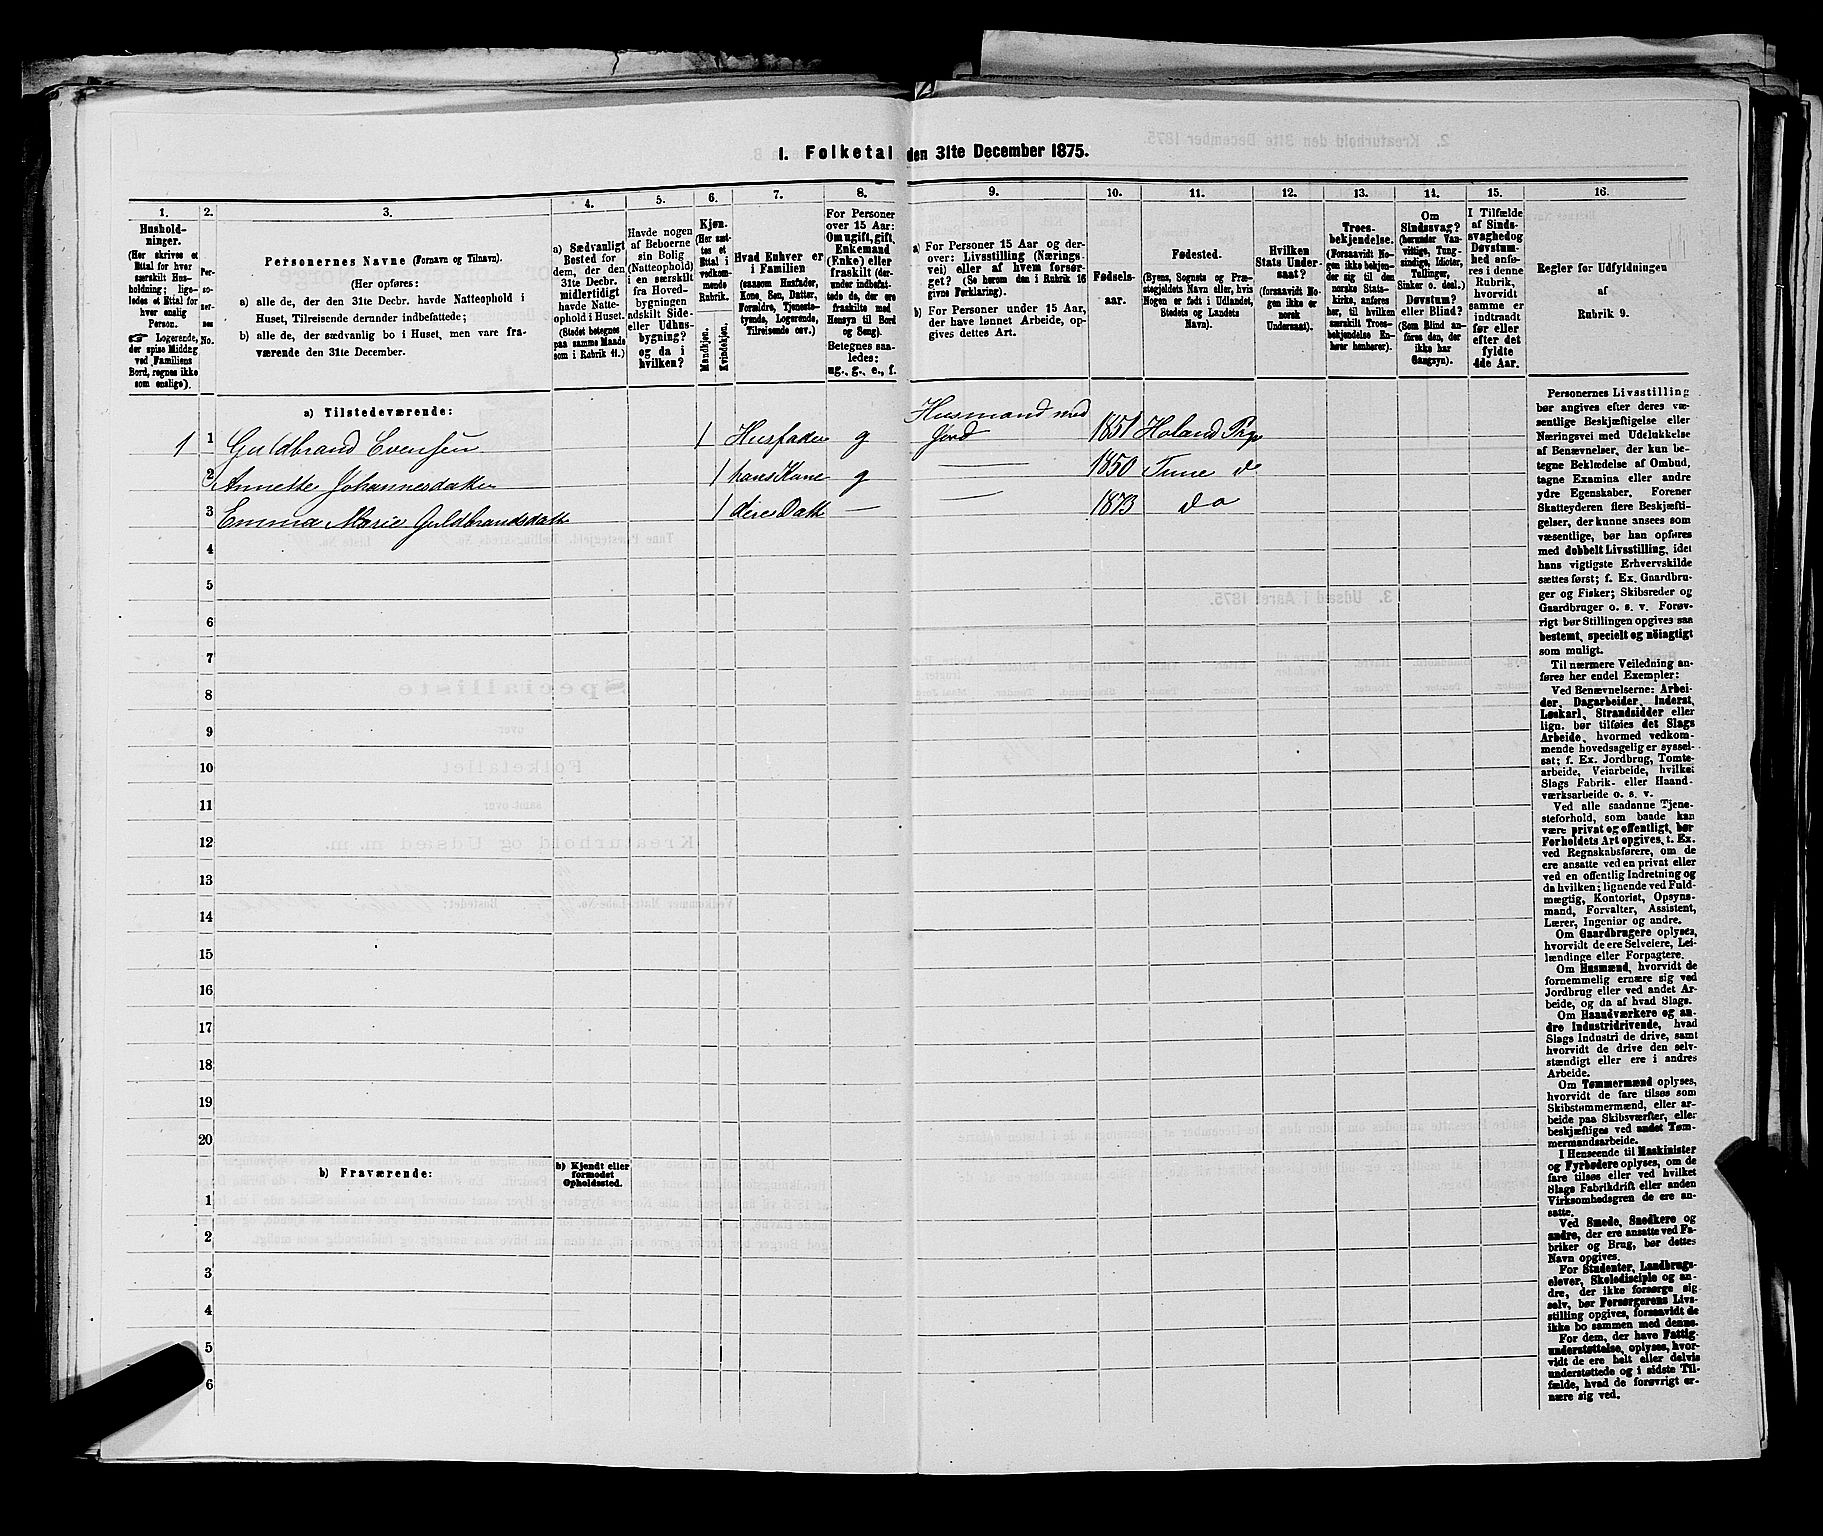 1. Folketal den 31te December 1875.
1.
Hushold-
ninger.
(Her skrives et
Ettal for hver
særskilt Hus-
holdning; lige-
ledes et Ettal for
hver enslig
Person.
Logerende,
der spise Middag
ved Familiens
Bord, regnes ikke
som enslige).
2.
Per-
so-
ner-
nes
No.
3.
Personernes Navne (Fornavn og Tilnavn).
(Her opføres:
a) alle de, der den 31te Decbr. havde Natteophold i
Huset, Tilreisende derunder indbefattede;
b) alle de, der sædvanlig bo i Huset, men vare fra-
værende den 31te December.
4.
a) Sædvanligt
Bosted for
dem, der den
31te Decbr.
midlertidigt
havde Natte-
ophold i Huset.
(Stedet betegnes
paa samme Maade
som i Rubrik 11.)
5.
Havde nogen
af Beboerne
sin Bolig
(Natteophold)
i en særskilt
fra Hoved-
bygningen
adskilt Side-
eller Udhus-
bygning?
og da i
hvilken?
6.
Kjøn.
(Her sæt-
tes et
Ettal i
vedkom-
mende
Rubrik.
Mandkjøn.
Kvindekjøn.
7.
Hvad Enhver er
i Familien
(saasom Husfader,
Kone, Søn, Datter,
Forældre, Tjeneste-
tyende, Logerende,
Tilreisende osv.)
8.
For Personer
over 15 Aar:
Om ugift, gift,
Enkemand
(Enke) eller
fraskilt (der-
under indbefat-
tede de, der ere
fraskilte med
Hensyn til Bord
og Seng).
Betegnes saa-
ledes:
ug., g., e., f.
9.
a) For Personer 15 Aar og der-
over: Livsstilling (Nærings-
vei) eller af hvem forsør-
get? (Se herom den i Rubrik 16
givne Forklaring).
b) For Personer under 15 Aar,
der have lønnet Arbeide, op-
gives dettes Art.
10.
Fødsels-
aar.
11.
Fødested.
(Byens, Sognets og Præ-
stegjeldets Navn eller, hvis
Nogen er født i Udlandet,
Stedets og Landets
Navn).
12.
Hvilken
Stats Under-
saat?
(forsaavidt No-
gen ikke er
norsk
Undersaat).
13.
Troes-
bekjendelse.
(Forsaavidt No-
gen ikke bekjen-
der sig til den
norske Stats-
kirke, anføres
her, til hvilken
særskilt Troes-
bekjendelse En-
hver henhører).
14.
Om
Sindssvag?
(herunder Van-
vittige, Tung-
sindige, Idioter,
Tullinger,
Sinker o. desl.)
Døvstum?
eller Blind?
(Som Blind an-
føres den, der
ikke har
Gangsyn).
15.
I Tilfælde
af Sinds-
svaghed og
Døvstum-
hed anfø-
res i denne
Rubrik,
hvorvidt
samme er
indtraadt
før eller
efter det
fyldte
4de Aar.
16.
Regler for Udfyldningen
af
Rubrik 9.
a) Tilstedeværende:
1 1 Guldbrand Evensen 1 Husfader g Husmand med
Jord 1851 Holand Prgj
2 Annette Johannesdatter 1 hans Kone g — 1850 Tune do
3 Emma Marie Guldbrandsdatt 1 deres Datt — — 1873 do
4
5
6
7
8
9
10
11
12
13
14
15
16
17
18
19
20
b) Fraværende:
b) Kjendt eller
formodet
Opholdssted.
1
2
3
4
5
6
Personernes Livsstilling
bør angives efter deres væ-
sentlige Beskjæftigelse eller
Næringsvei med Udelukkelse
af Benævnelser, der kun be-
tegne Beklædelse af Ombud,
tagne Examina eller andre
ydre Egenskaber. Forener
Skatteyderen flere Beskjæfti-
gelser, der kunne ansees som
væsentlige, bør han opføres
med dobbelt Livsstilling, idet
hans vigtigste Erhvervskilde
sættes først; f. Ex. Gaardbru-
ger og Fisker; Skibsreder og
Gaardbruger o. s. v. Forøv-
rigt bør Stillingen opgives saa
bestemt, specielt og nöiagtigt
som muligt.
Til nærmere Veiledning an-
føres her endel Exempler:
Ved Benævnelserne: Arbei-
der, Dagarbeider, Inderst,
Løskarl, Strandsidder eller
lign. bør tilføies det Slags
Arbeide, hvormed vedkom-
mende hovedsagelig er syssel-
sat; f. Ex. Jordbrug, Tomte-
arbeide, Veiarbeide, hvilket
Slags Fabrik- eller Haand-
værksarbeide o. s. v.
Ved alle saadanne Tjene-
steforhold, som baade kan
være privat og offentligt, bør
Forholdets Art opgives, t. Ex.
ved Regnskabsførere, om de
ere ansatte ved en privat eller
ved en offentlig Indretning og
da hvilken; lignende ved Fuld-
mægtig, Kontorist, Opsyns-
mand, Forvalter, Assistent,
Lærer, Ingeniør og andre.
Om Gaardbrugere oplyses,
hvorvidt de ere Selveiere, Lei-
lændinge eller Forpagtere.
Om Husmænd, hvorvidt de
fornemmelig ernære sig ved
Jordbrug eller ved andet Ar-
beide, og da af hvad Slags.
Om Haandværkere og an-
dre Industridrivende, hvad
Slags Industri de drive, samt
hvorvidt de drive den selv-
stændigt eller ere i andres
Arbeide.
Om Tømmermænd oplyses,
hvorvidt de fare tilsøs som
Skibstømmermænd, eller ar-
beide paa Skibsværfter, eller
beskjæftiges ved andet Tøm-
mermandsarbeide.
I Henseende til Maskinister
og Fyrbødere oplyses, om de
fare tilsøs eller ved hvilket
Slags Fabrikdrift eller anden
Virksomhedsgren de ere an-
satte.
Ved Smede, Snedkere og
andre, der ere ansatte ved Fa-
briker og Brug, bør dettes
Navn opgives.
For Studenter, Landbrugs-
elever, Skoledisciple og an-
dre, der ikke forsørge sig
selv, bør Forsørgerens Livs-
stilling opgives, forsaavidt de
ikke bo sammen med denne.
For dem, der have Fattig-
understøttelse, oplyses, hvor-
vidt de ere helt eller delvis
understøttede og i sidste Til-
fælde, hvad de forøvrigt er-
nære sig ved.